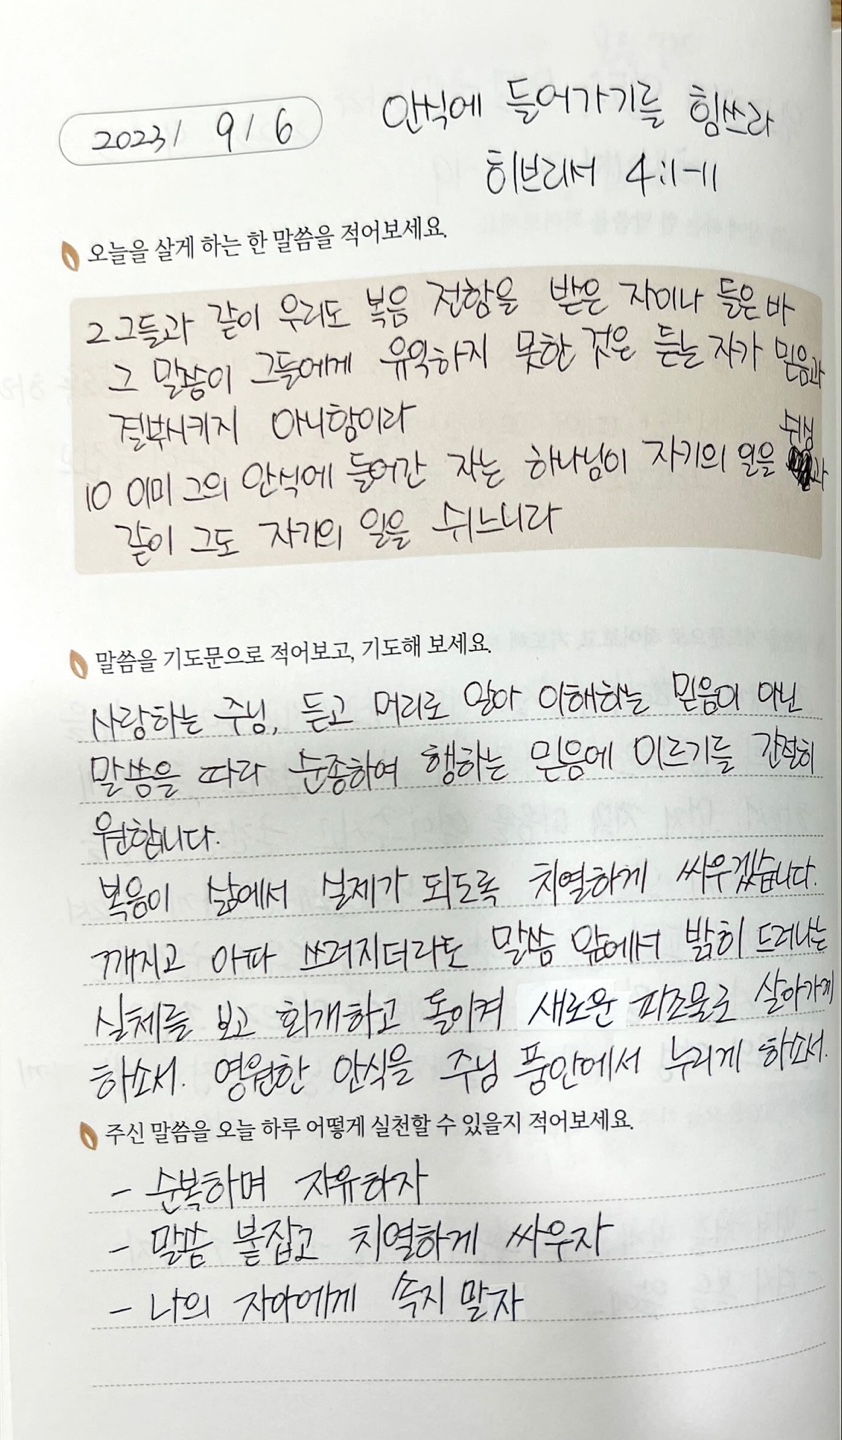 2023/ 9/6
안식에 들어가기를 힘쓰라
히브리서 4:1-11
오늘을 살게 하는 한 말씀을 적어보세요.
2 그들과 같이 우리도 복음 전함을 받은 자이나 들은 바
그 말씀이 그들에게 유익하지 못한 것은 듣는 자가 믿음과
결부시키지 아니함이라
쉬심
10 이미 그의 안식에 들어간 자는 하나님이 자기의 일을 과
같이 그도 자기의 일을 쉬느니라
말씀을 기도문으로 적어보고, 기도해 보세요.
사랑하는 주님, 듣고 머리로 알아 이해하는 믿음이 아닌
말씀을 따라 순종하여 행하는 믿음에 이르기를 간절히
원합니다.
복음이 삶에서 실제가 되도록 치열하게 싸우겠습니다.
깨지고 아파 쓰러지더라도 말씀 앞에서 밝히 드러나는
실체를 보고 회개하고 돌이켜 새로운 피조물로 살아가게
하소서. 영원한 안식을 주님 품안에서 누리게 하소서.
주신 말씀을 오늘 하루 어떻게 실천할 수 있을지 적어보세요.
- 순복하며 자유하자
- 말씀 붙잡고 치열하게 싸우자
- 나의 자아에게 속지 말자